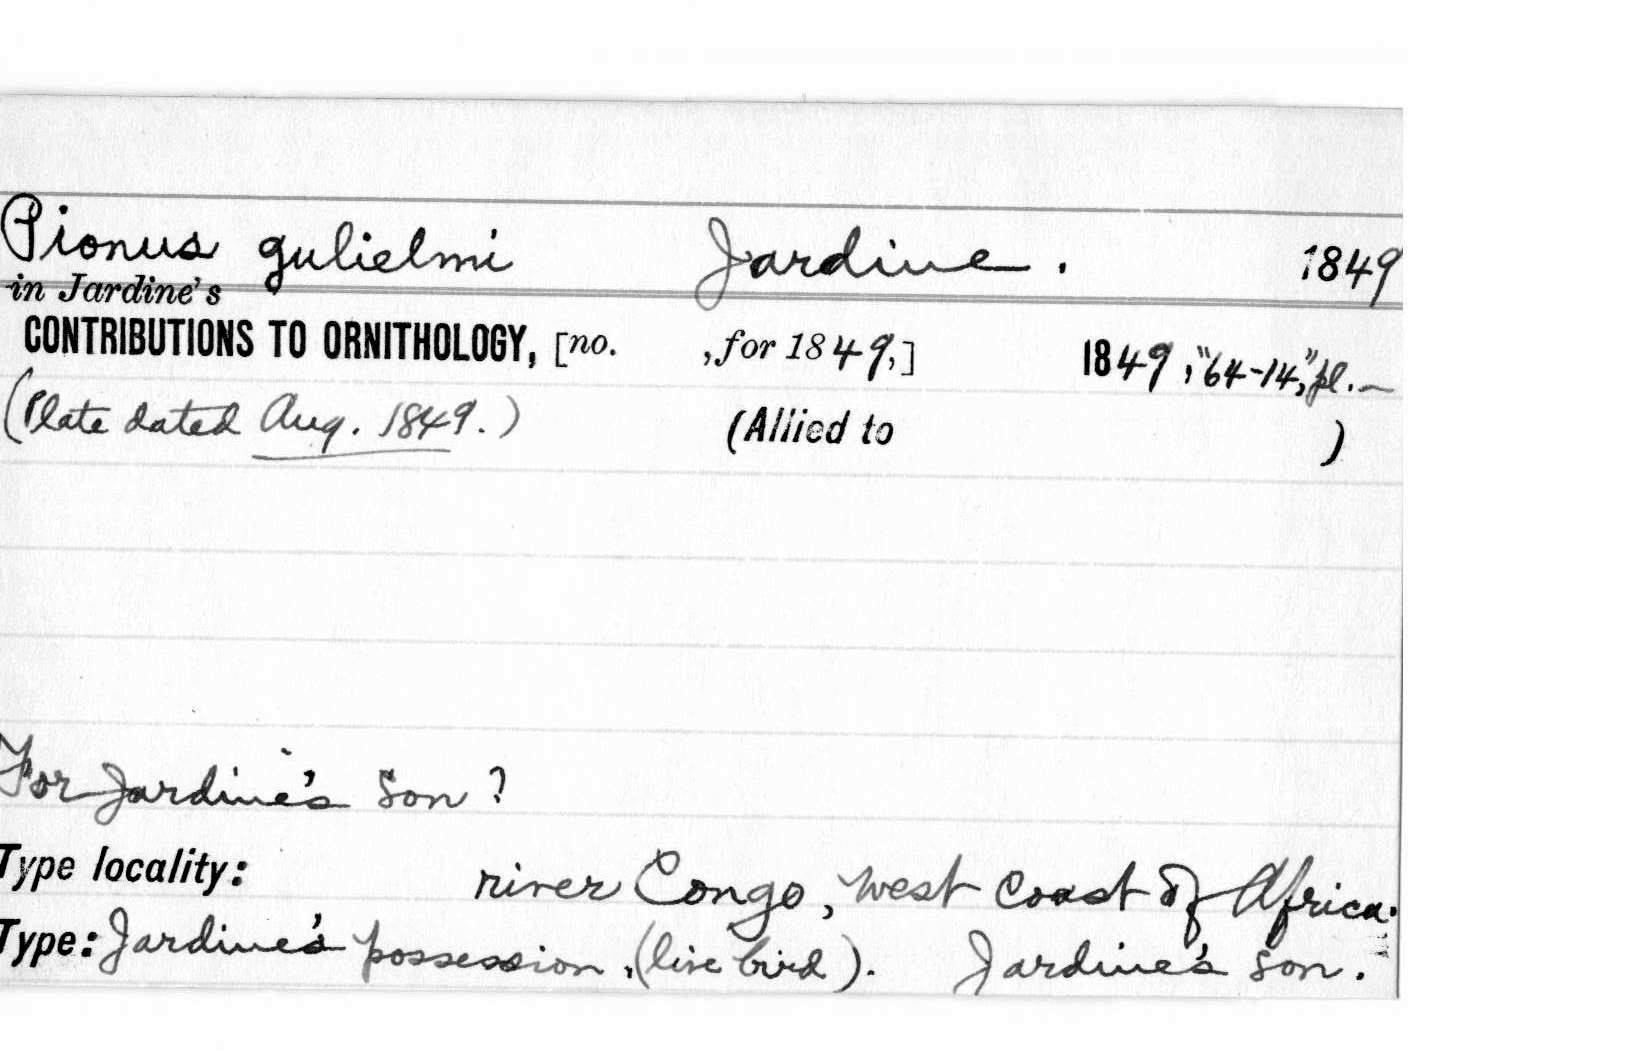 Pionus gulielmi Jardine. 1849
in Jardine's
CONTRIBUTIONS TO ORNITHOLOGY, [no. , for 1849,] 1849, "64-14," pl. —
(Plate dated Aug. 1849.) (Allied to )
For Jardine's son?
Type locality: river Congo, west coast of Africa.
Type: Jardine's possession, (live bird). Jardine's son.